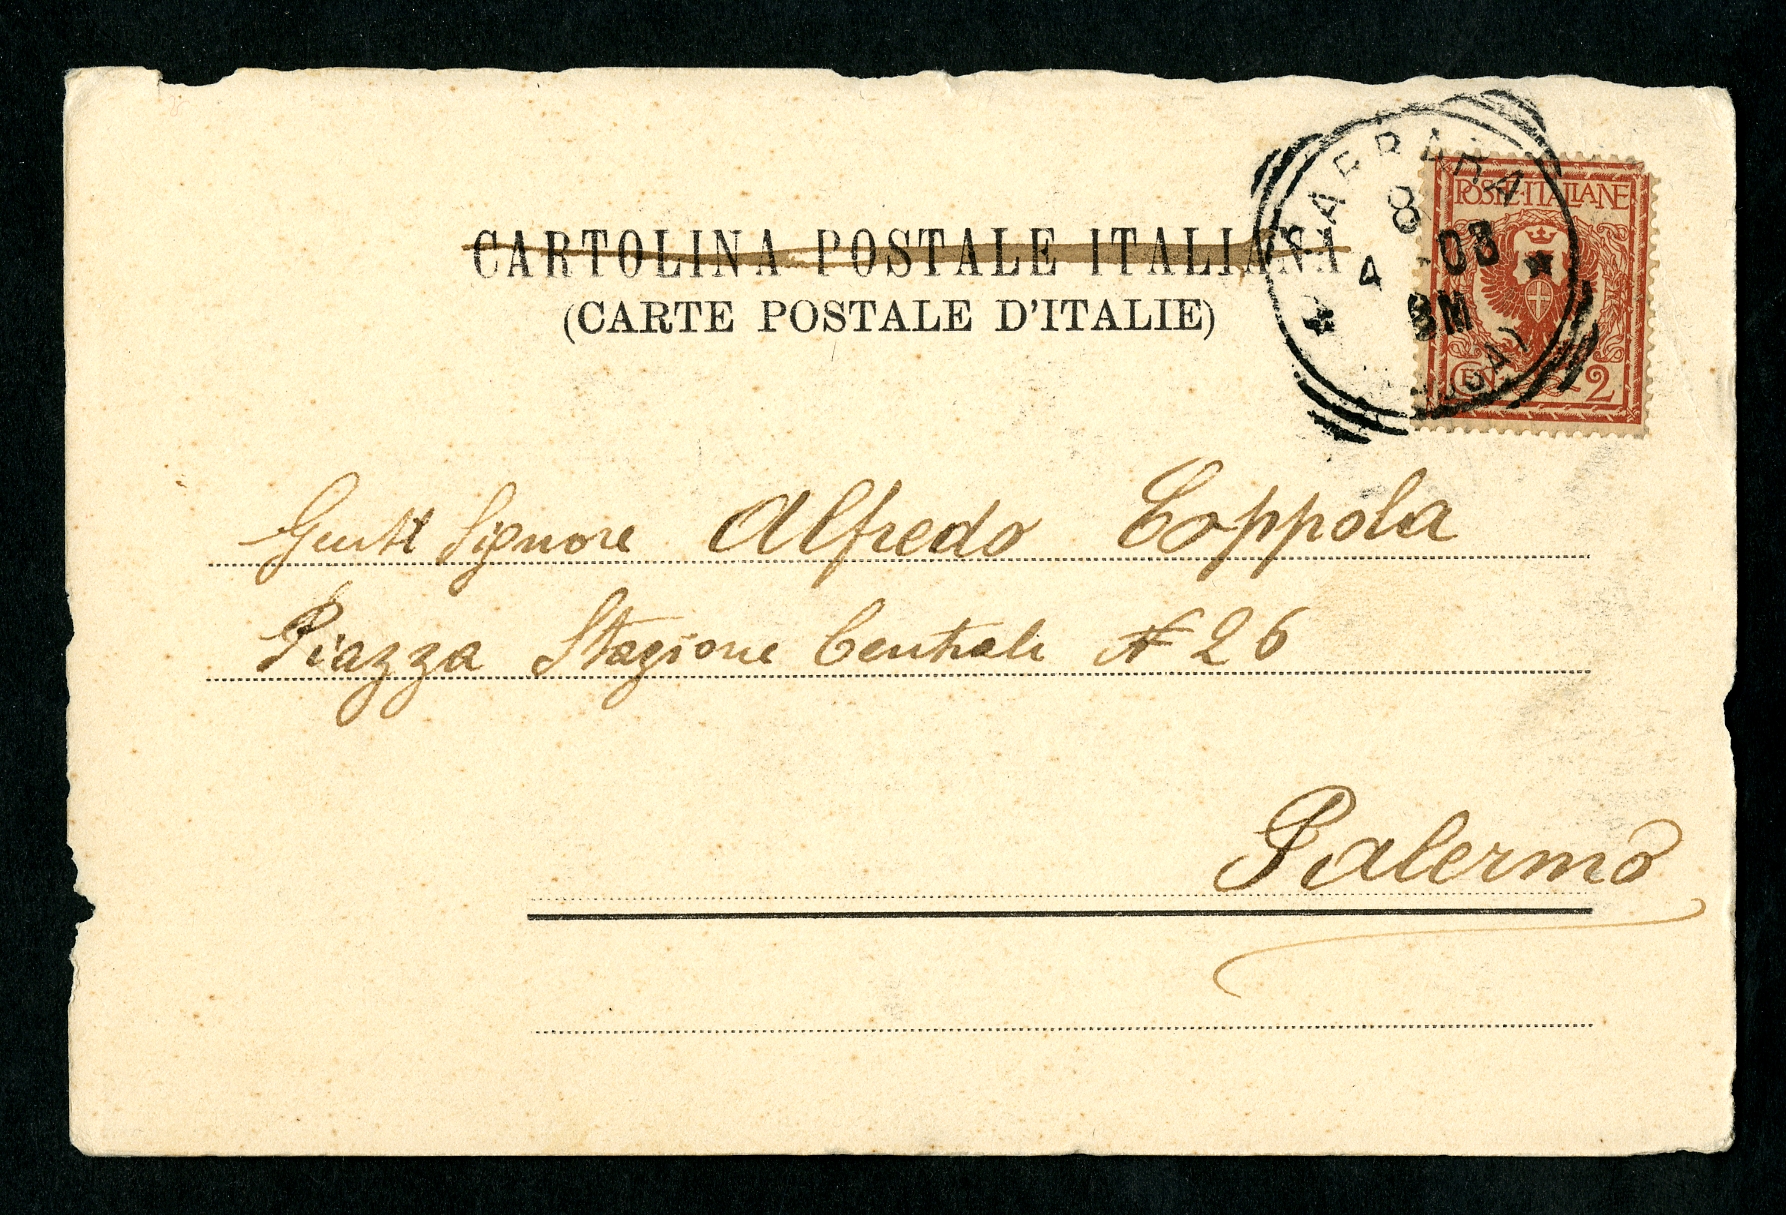 CARTOLINA POSTALE ITALIANA
(CARTE POSTALE D'ITALIE)
CARRARA
8
4 - 03
8M
POSTE·ITALIANE
2
Gentt Signore Alfredo Coppola
Piazza Stazione Centrale N 26
Palermo